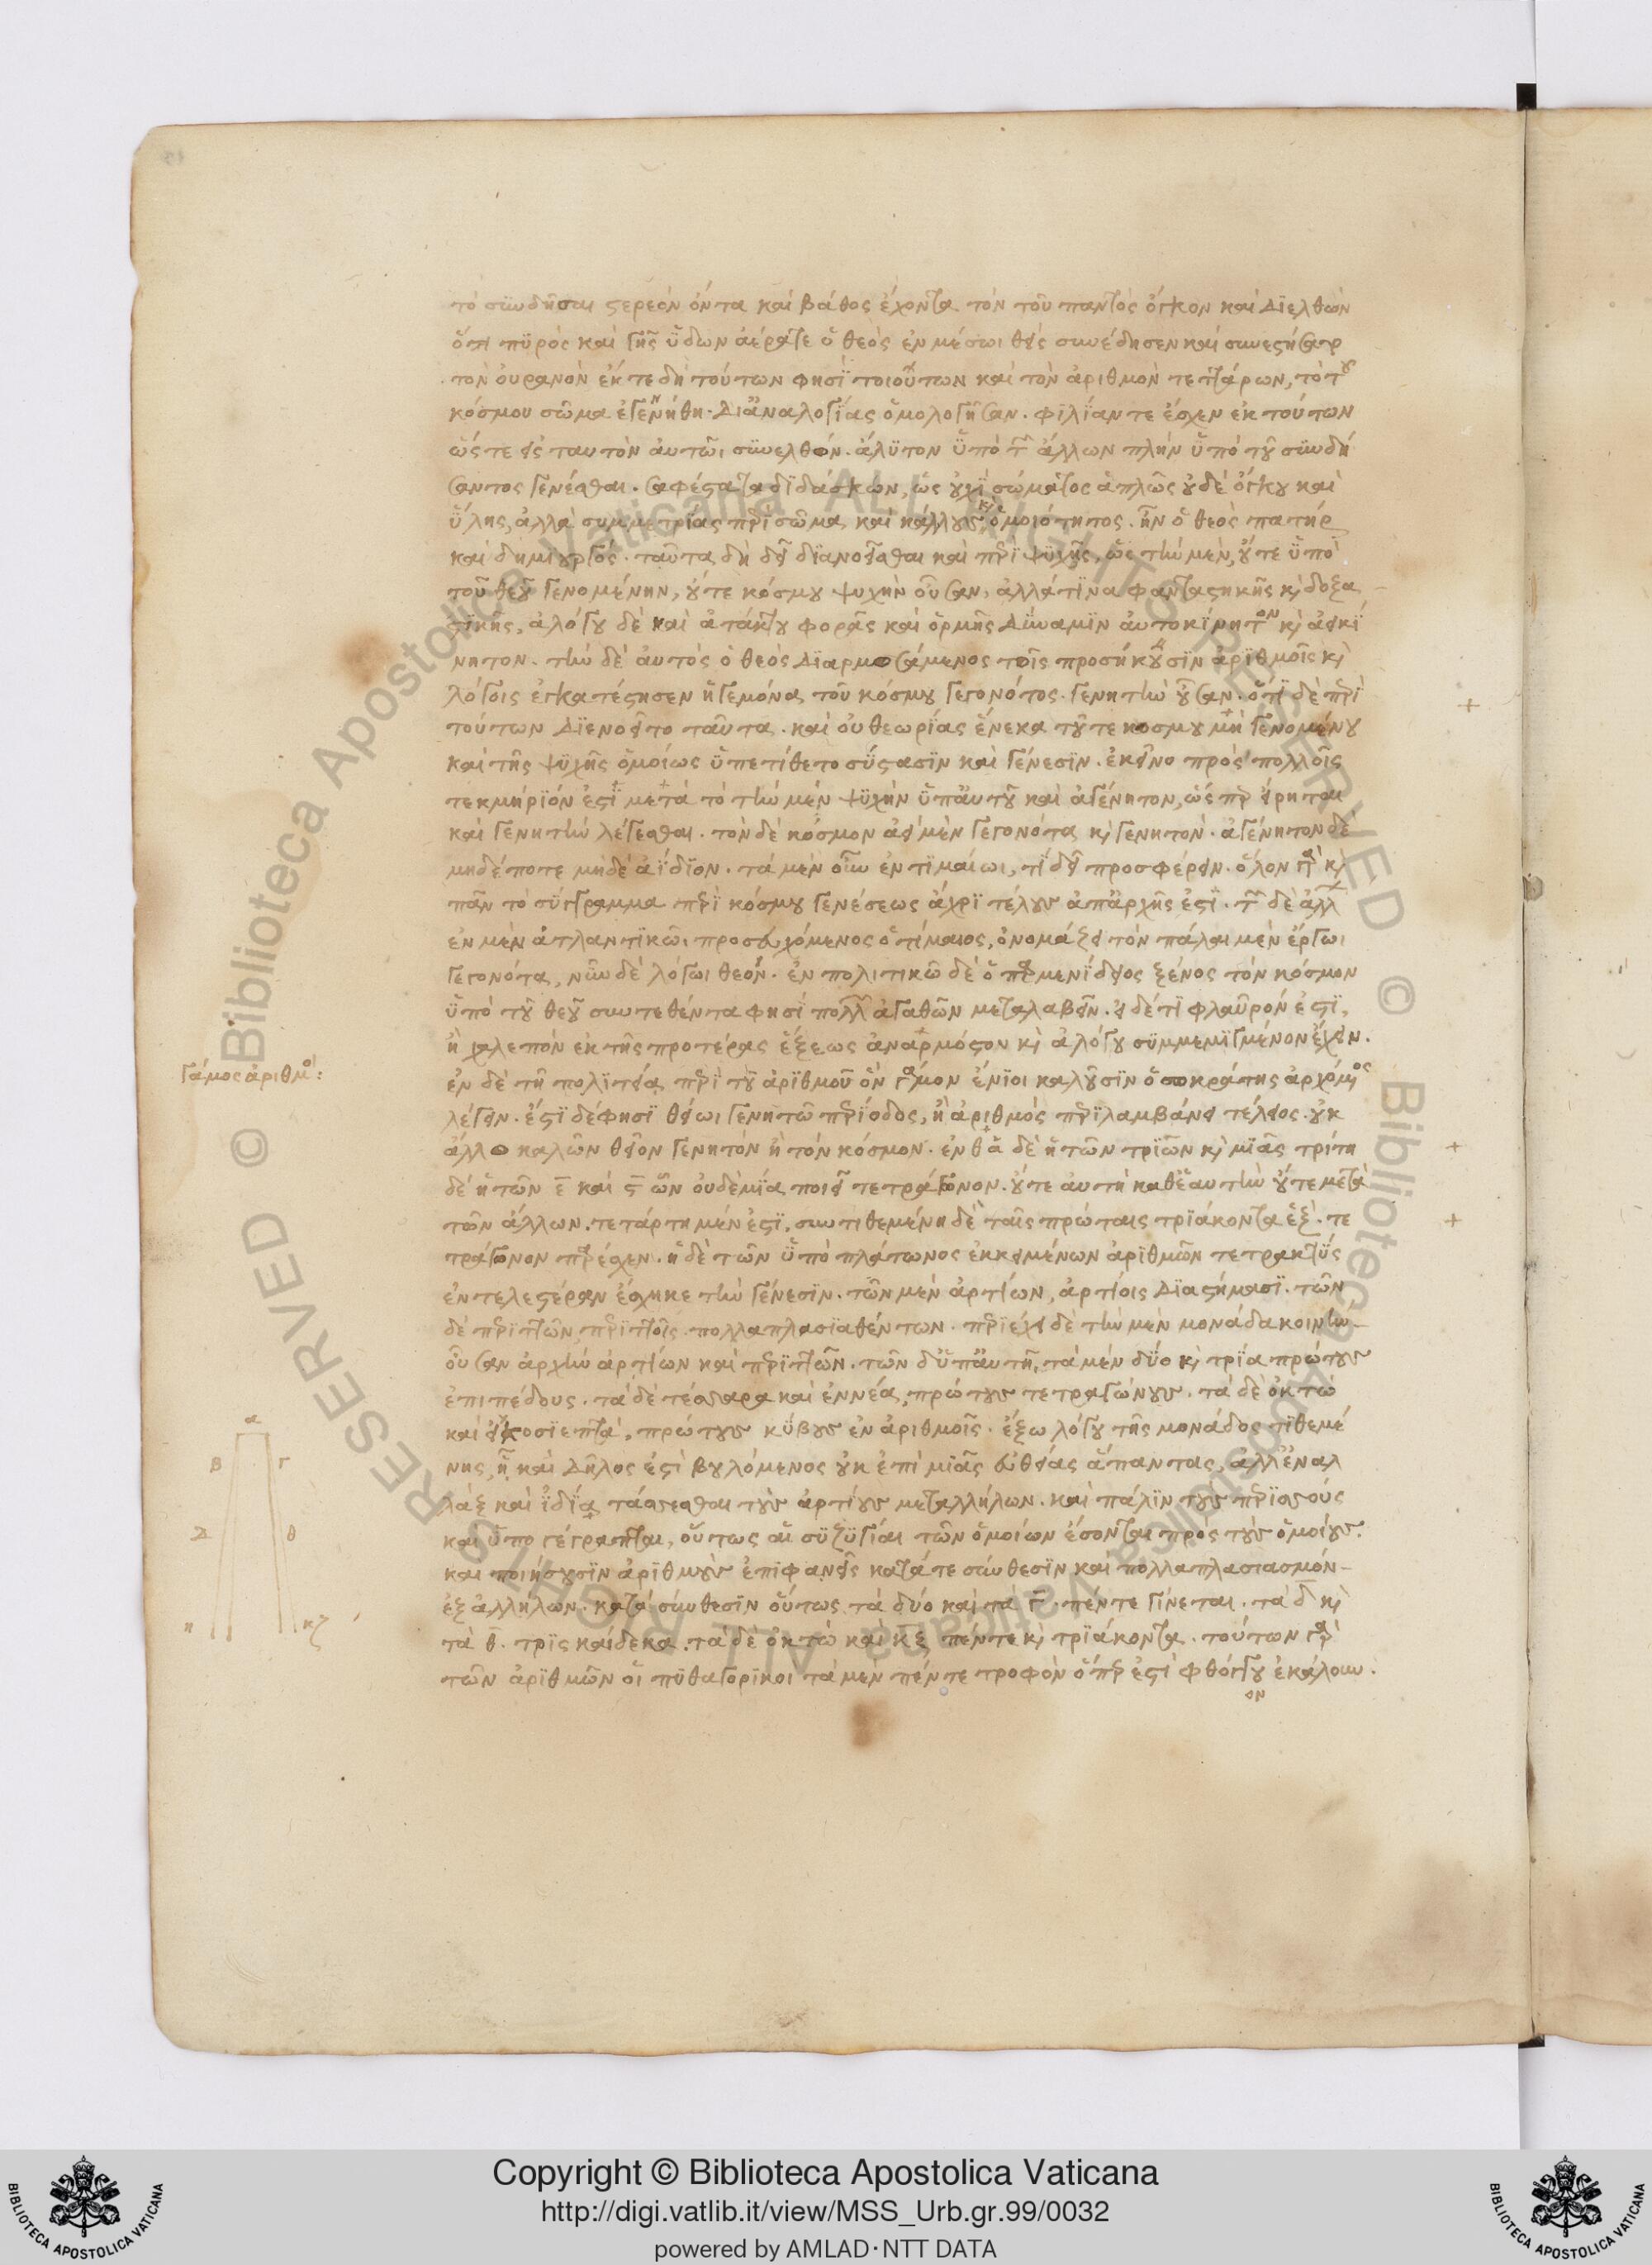 τὸ συνδῆσαι στερεὸν ὄντα καὶ βάθος ἔχοντα τὸν τοῦ παντὸς ὄγκον καὶ διελθὼν
ὅτι πυρὸς καὶ γῆς ὕδωρ ἀέρα τε ὁ θεὸς ἐν μέσωι θεὶς συνέδησεν καὶ συνεστήσατο
τὸν οὐρανὸν ἐκ τε δὴ τούτων φησὶ τοιούτων καὶ τὸν ἀριθμὸν τεττάρων, τὸ τοῦ
κόσμου σῶμα ἐγεννήθη. δι' ἀναλογίας ὁμολογῆσαν. φιλίαν τε ἔσχεν ἐκ τούτων
ὥστε εἰς ταυτὸν αὑτῶι συνελθὸν. ἄλυτον ὑπὸ τῶν ἄλλων πλὴν ὑπὸ τοῦ συνδή
σαντος γενέσθαι. σαφέστατα διδάσκων, ὡς οὐχὶ σώματος ἁπλῶς οὐδὲ ὄγκου καὶ
ὕλης, ἀλλὰ συμμετρίας περὶ σῶμα καὶ κάλλους καὶ ὁμοιότητος. ἦν ὁ θεὸς πατὴρ
καὶ δημιουργός. ταῦτα δὴ δεῖ διανοεῖσθαι καὶ περὶ ψυχῆς, ὡς τὴν μὲν, οὔτε ὑπὸ
τοῦ θεοῦ γενομένην, οὔτε κόσμου ψυχὴν οὖσαν, ἀλλά τινα φανταστικῆς καὶ δοξα
στικῆς, ἀλόγου δὲ καὶ ἀτάκτου φορᾶς καὶ ὁρμῆς δύναμιν αὐτοκίνητον καὶ ἀεικί
νητον. τὴν δὲ αὐτὸς ὁ θεὸς διαρμοσάμενος τοῖς προσήκουσιν ἀριθμοῖς καὶ
λόγοις ἐγκατέστησεν ἡγεμόνα τοῦ κόσμου γεγονότος. γενητὴν οὖσαν. ὅτι δὲ περὶ
τούτων διενοεῖτο ταῦτα. καὶ οὐ θεωρίας ἕνεκα τοῦ τε κοσμου μὴ γενομένου
καὶ τῆς ψυχῆς ὁμοίως ὑπετίθετο σύστασιν καὶ γένεσιν. ἐκεῖνο πρὸς πολλοῖς
τεκμήριόν ἐστι μετὰ τὸ τὴν μὲν ψυχὴν ὑπ' αὐτοῦ καὶ ἀγένητον, ὥσπερ εἴρηται
καὶ γενητὴν λέγεσθαι. τὸν δὲ κόσμον ἀεὶ μὲν γεγονότα καὶ γενητόν. ἀγένητον δὲ
μηδέποτε μηδὲ ἀΐδιον. τὰ μὲν οὖν ἐν τιμαίωι, τί δεῖ προσφέρειν. ὅλον γὰρ καὶ
πᾶν τὸ σύγγραμμα περὶ κόσμου γενέσεως ἄχρι τέλους ἀπ' ἀρχῆς ἐστι. τῶν δὲ ἄλλων
ἐν μὲν ἀτλαντικῶι προσευχόμενος ὁ τίμαιος, ὀνομάζει τὸν πάλαι μὲν ἔργωι
γεγονότα, νῦν δὲ λόγωι θεόν. ἐν πολιτικῶ δὲ ὁ παρμενίδειος ξένος τὸν κόσμον
ὑπὸ τοῦ θεοῦ συντεθέντα φησὶ πολλῶν ἀγαθῶν μεταλαβεῖν. εἰ δέ τι φλαῦρόν ἐστι,
ἢ χαλεπὸν ἐκ τῆς προτέρας ἕξεως ἀναρμόστου καὶ ἀλόγου συμμεμιγμένον ἔχειν.
Γάμος ἀριθμοῦ:
ἐν δὲ τῆ πολιτεία περὶ τοῦ ἀριθμοῦ ὃν γάμον ἔνιοι καλοῦσιν ὁ σωκράτης ἀρχόμενος
λέγειν. ἔστι δέ φησι θείωι γενητῶ περίοδος, ἣν ἀριθμὸς περιλαμβάνει τέλειος. οὐκ
ἄλλο καλῶν θεῖον γενητὸν ἢ τὸν κόσμον. ἐν θ ᾶ δὲ ἡ τῶν τριῶν καὶ μιᾶς τρίτη
δὲ ἡ τῶν ε̅ καὶ ς̅ ὧν οὐδεμία ποιεῖ τετράγωνον. οὔτε αὐτὴ καθ' ἑαυτὴν οὔτε μετὰ
τῶν ἄλλων. τετάρτη μέν ἐστι, συντιθεμένη δὲ ταῖς πρώταις τριάκοντα ἓξ. τε
τράγωνον παρέσχεν. ἡ δὲ τῶν ὑπὸ πλάτωνος ἐκκειμένων ἀριθμῶν τετρακτὺς
ἐντελεστέραν ἔσχηκε τὴν γένεσιν. τῶν μὲν ἀρτίων, ἀρτίοις διαστήμασι. τῶν
δὲ περιττῶν περιττοῖς πολλαπλασιασθέντων. περιέχει δὲ τὴν μὲν μονάδα κοινὴν
οὖσαν ἀρχὴν ἀρτίων καὶ περιττῶν. τῶν δ' ὑπ' αὐτῆ, τὰ μὲν δύο καὶ τρία πρώτους
ἐπιπέδους. τὰ δὲ τέσσαρα καὶ ἐννέα, πρώτους τετραγώνους. τὰ δὲ ὀκτὼ
καὶ εἰκοσιεπτὰ, πρώτους κύβους ἐν ἀριθμοῖς. ἔξω λόγου τῆς μονάδος τιθεμέ
νης, ἧ καὶ δῆλος ἐστὶ βουλόμενος οὐκ ἐπὶ μιᾶς εὐθείας ἅπαντας, ἀλλ' ἐναλ
λὰξ καὶ ἰδία τάσσεσθαι τοὺς ἀρτίους μετ' ἀλλήλων. καὶ πάλιν τοὺς περισσούς
και ὑπογέγραπται, οὕτως αἱ συζυγίαι τῶν ὁμοίων ἔσονται πρὸς τοὺς ὁμοίους.
και ποιήσουσιν ἀριθμοὺς ἐπιφανεῖς κατά τε σύνθεσιν καὶ πολλαπλασιασμόν
ἐξ ἀλλήλων. κατὰ σύνθεσιν οὕτως τὰ δύο καὶ τὰ γ̅. πέντε γίνεται. τὰ δ̅ καὶ
τὰ θ̅. τρὶς καίδεκα. τὰ δὲ ὀκτὼ καὶ κζ πέντε καὶ τριάκοντα. τούτων γὰρ
τῶν ἀριθμῶν οἱ πυθαγορικοι τὰ μὲν πέντε τροφὸν ὅπερ ἐστὶ φθόγγου ἐκάλουν.
ον
α
β γ
δ θ
η κζ
Copyright © Biblioteca Apostolica Vaticana
http://digi.vatlib.it/view/MSS_Urb.gr.99/0032
powered by AMLAD·NTT DATA